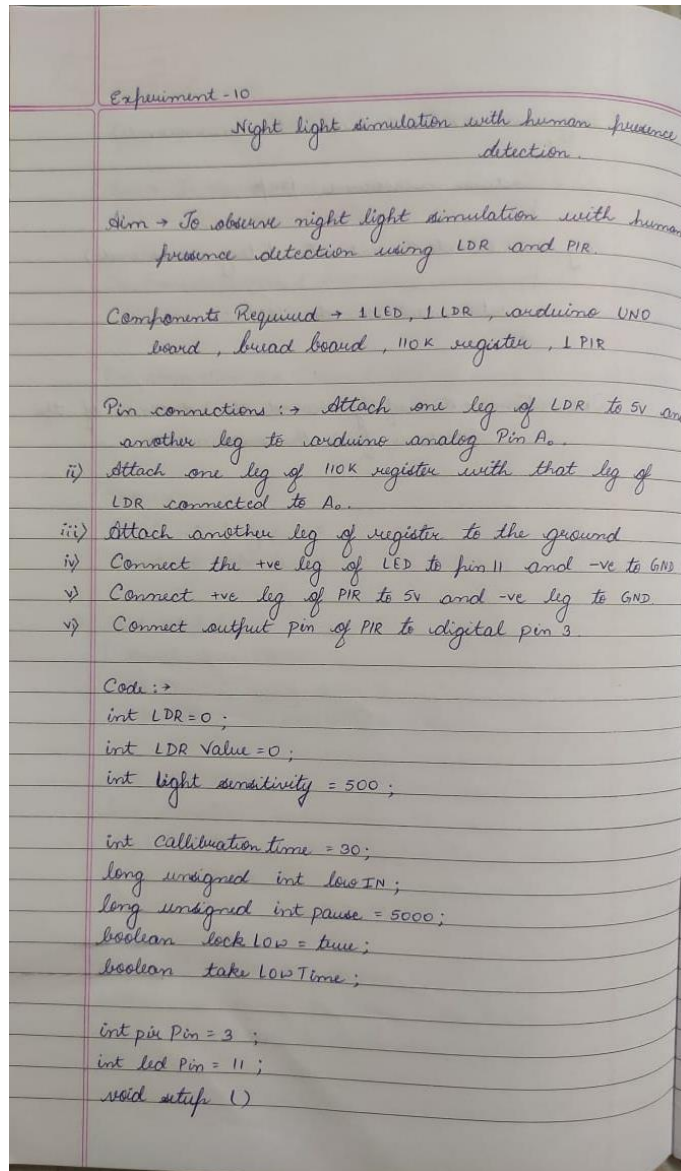 Experiment - 10
Night light simulation with human presence
detection.
Aim → To observe night light simulation with human
presence detection using LDR and PIR.
Components Required → 1 LED, 1 LDR, arduino UNO
board, bread board, 110K register, 1 PIR
Pin connections :→ Attach one leg of LDR to 5v and
another leg to arduino analog Pin A₀.
ii) Attach one leg of 110K register with that leg of
LDR connected to A₀.
iii) Attach another leg of register to the ground
iv) Connect the +ve leg of LED to pin 11 and -ve to GND
v) Connect +ve leg of PIR to 5v and -ve leg to GND.
vi) Connect output pin of PIR to digital pin 3.
Code :→
int LDR = 0 ;
int LDR Value = 0 ;
int light sensitivity = 500 ;
int Callibration time = 30;
long unsigned int low IN ;
long unsigned int pause = 5000;
boolean lock Low = true;
boolean take LOW Time ;
int pir Pin = 3 ;
int led Pin = 11 ;
void setup ()